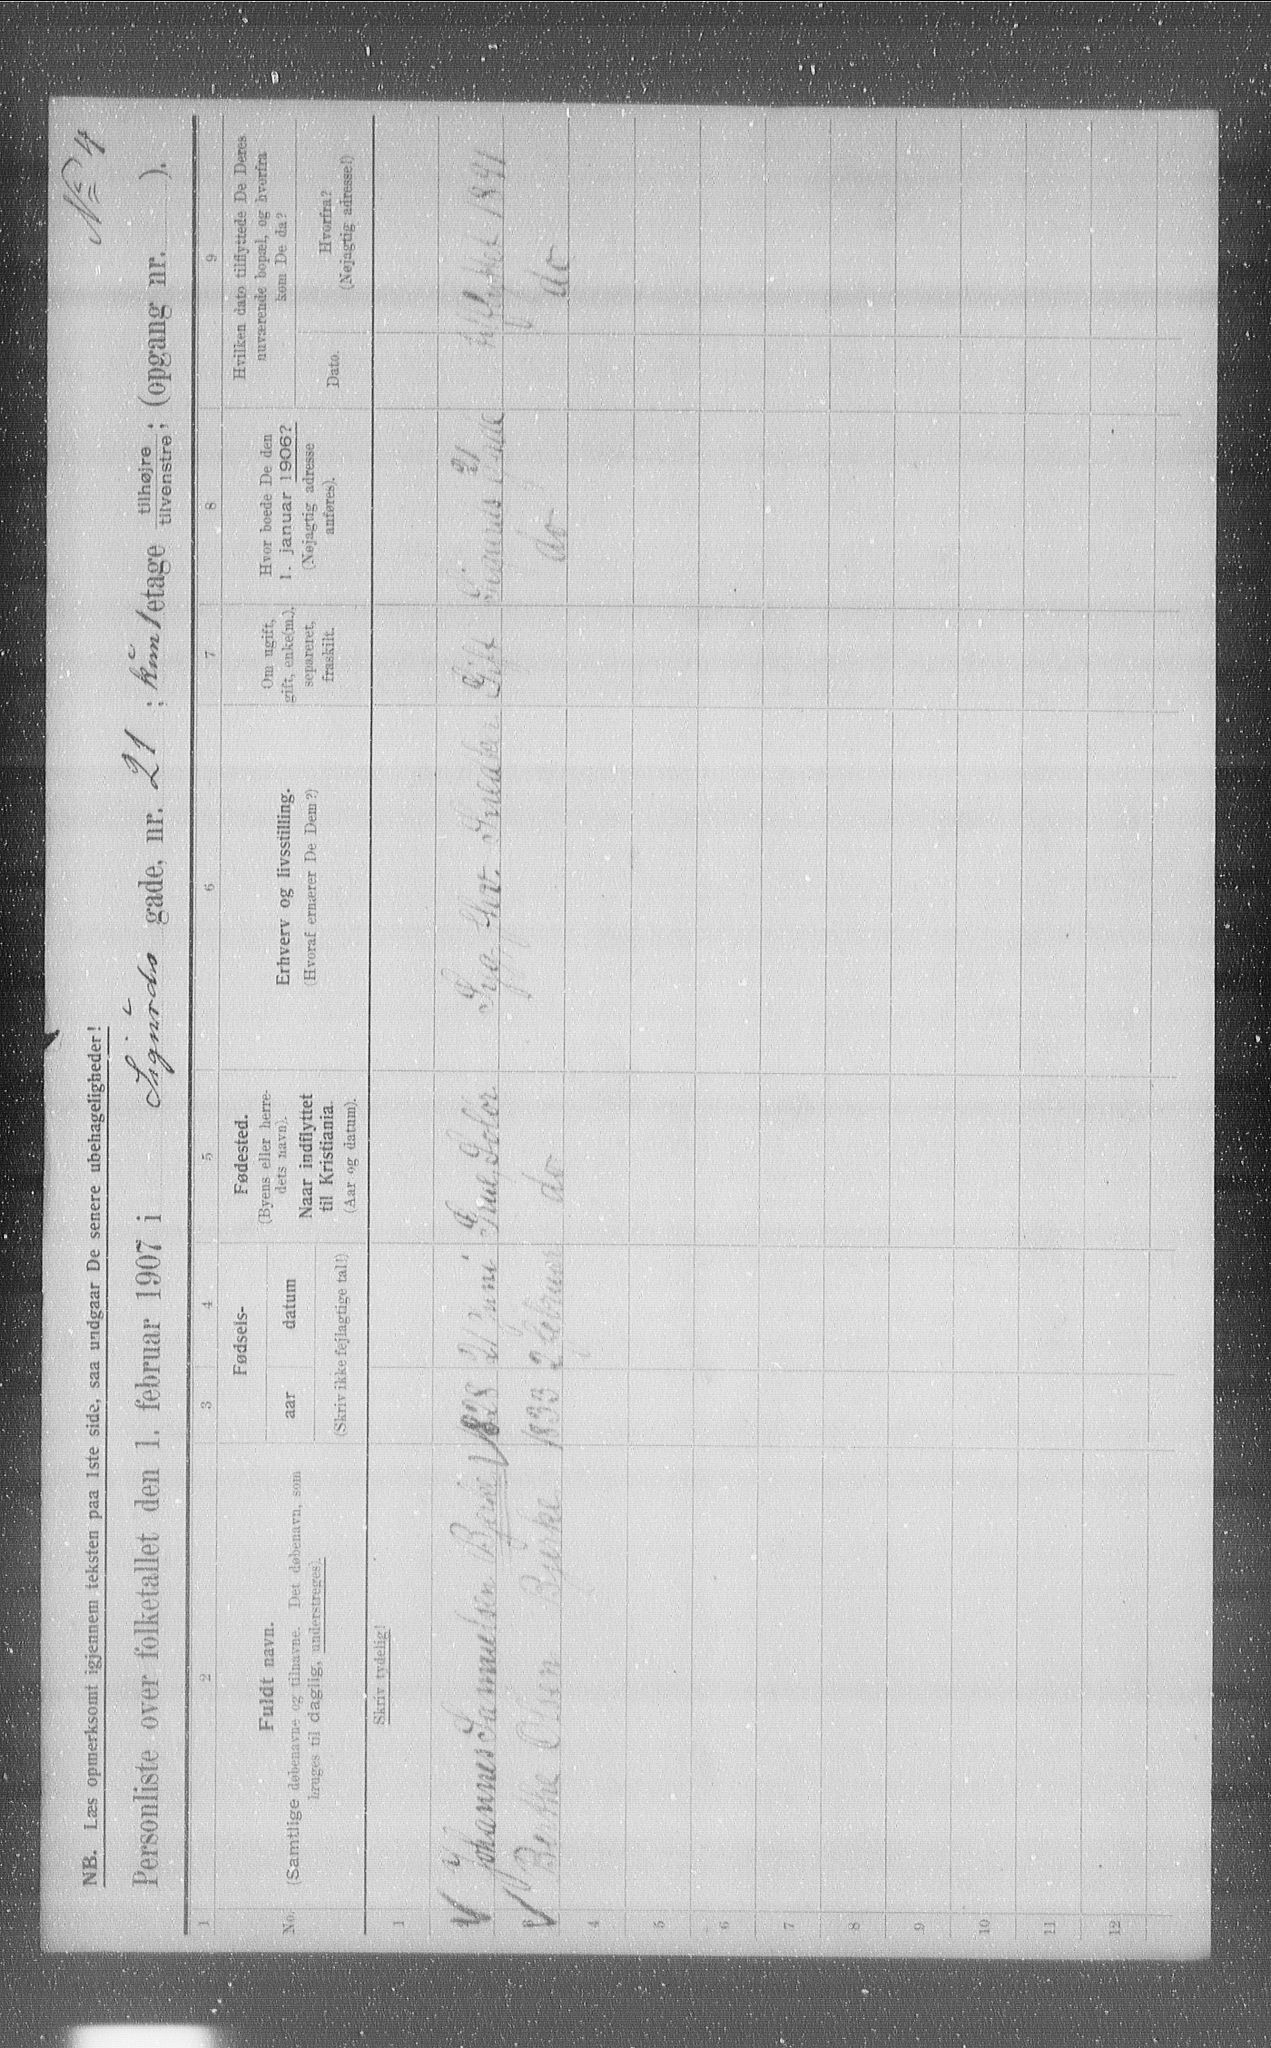 Nº 4
NB. Læs opmerksomt igjennem teksten paa 1ste side, saa undgaar De senere ubehageligheder!
Personliste over folketallet den 1. februar 1907 i Sigurds gade, nr. 21 ; etage tilhøjre ; tilvenstre; (opgang nr. ).
1 2 3 4 5 6 7 8 9
No.
Fuldt navn.
(Samtlige døbenavne og tilnavne. Det døbenavn, som
bruges til daglig, understreges).
Fødsels-
aar datum
(Skriv ikke fejlagtige tal!)
Fødested.
(Byens eller herre-
dets navn).
Naar indflyttet
til Kristiania.
(Aar og datum).
Erhverv og livsstilling.
(Hvoraf ernærer De Dem?)
Om ugift,
gift, enke(m.),
separeret,
fraskilt.
Hvor boede De den
1. januar 1906?
(Nøjagtig adresse
anføres).
Hvilken dato tilflyttede De Deres
nuværende bopæl, og hvorfra
kom De da?
Dato.
Hvorfra?
(Nøjagtig adresse!)
Skriv tydelig!
1
Johannes Samuelsen Bjerke 1828 21 juni Gift 21
3 Berthe Olsen Bjerke 1833 2 februar do do do
4
5
6
7
8
9
10
11
12